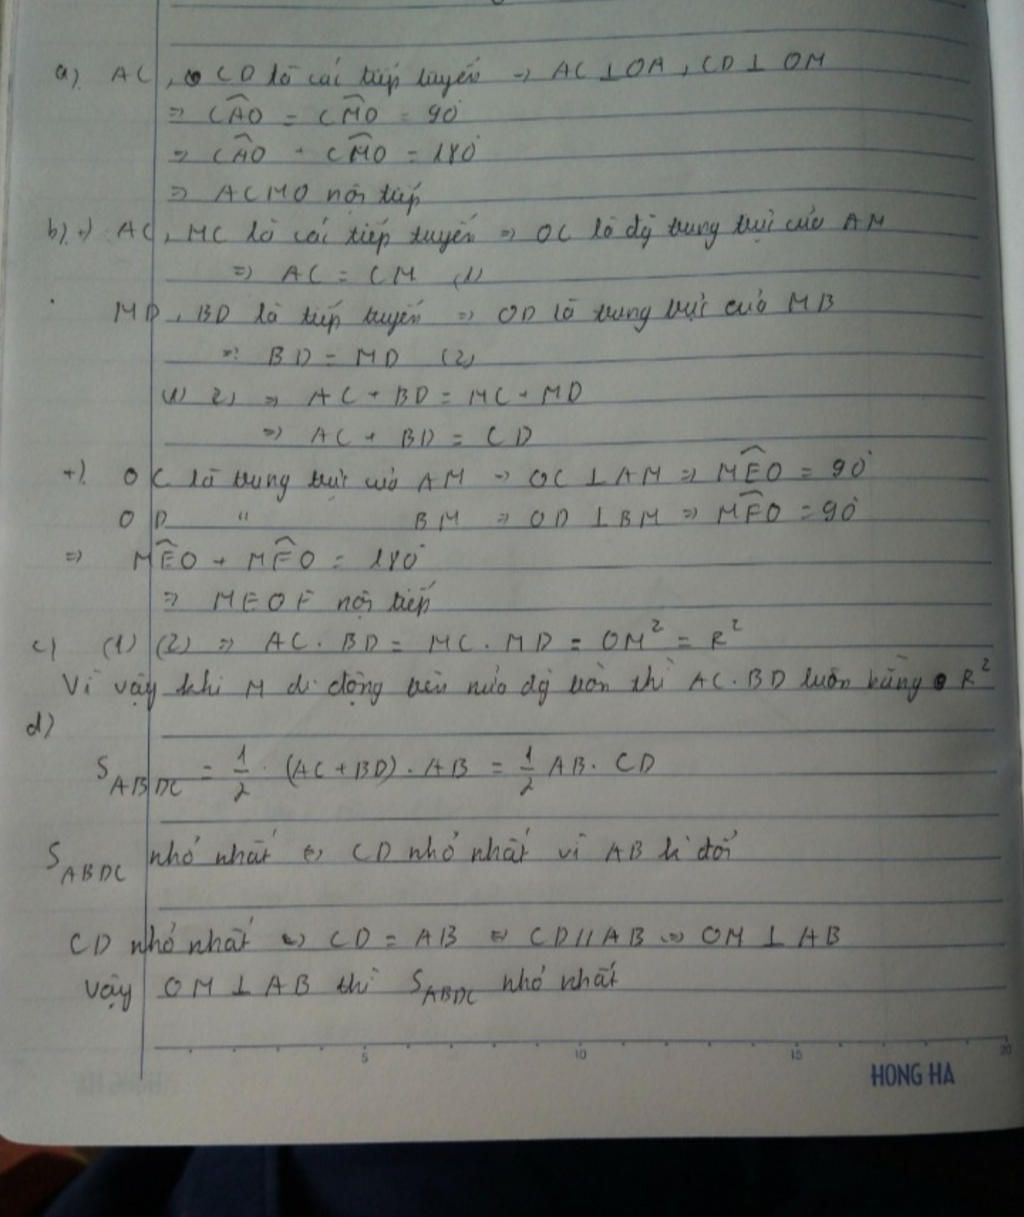 a) AC, CD là các tiếp tuyến => AC ⊥ OA, CD ⊥ OM
=> CAO = CMO = 90°
=> CAO + CMO = 180°
=> ACMO nội tiếp
b) +) AC, MC là các tiếp tuyến => OC là đg trung trực của AM
=> AC = CM (1)
MD, BD là tiếp tuyến => OD là trung trực của MB
=> BD = MD (2)
(1) 2) => AC + BD = MC + MD
=> AC + BD = CD
+) OC là trung trực của AM => OC ⊥ AM => MEO = 90°
OD " BM => OD ⊥ BM => MFO = 90°
=> MEO + MFO = 180°
=> MEOF nội tiếp
c) (1) (2) => AC . BD = MC . MD = OM² = R²
Vì vậy khi M di động trên nửa đg tròn thì AC . BD luôn bằng R²
d)
S ABDC = 1/2 . (AC + BD) . AB = 1/2 AB . CD
S ABDC nhỏ nhất <=> CD nhỏ nhất vì AB k đổi
CD nhỏ nhất <=> CD = AB <=> CD // AB => OM ⊥ AB
Vậy OM ⊥ AB thì S ABDC nhỏ nhất
5 10 15 20
HONG HA